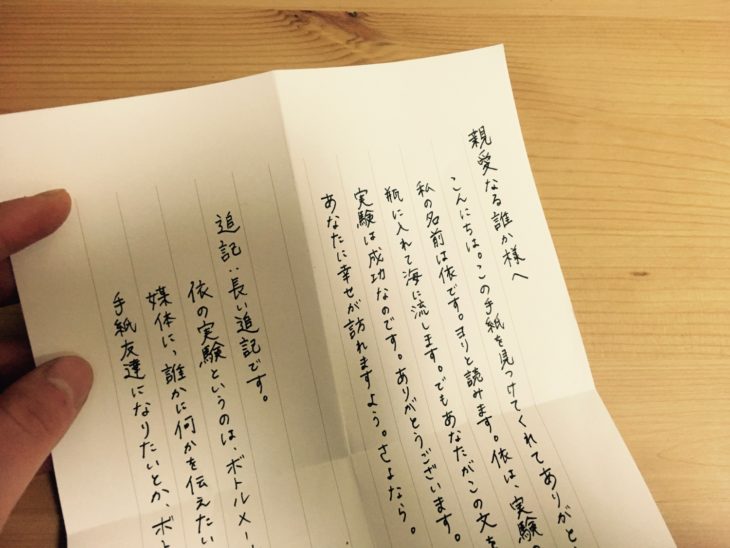 親愛なる誰か様へ
こんにちは。この手紙を見つけてくれてありがと
私の名前は依です。ヨリと読みます。依は、実験の
瓶に入れて海に流します。でもあなたがこの文を
実験は成功なのです。ありがとうございます。
あなたに幸せが訪れますよう。さよなら。
追記:長い追記です。
依の実験というのは、ボトルメー
媒体に、誰かに何かを伝えたい
手紙友達になりたいとか、ボト